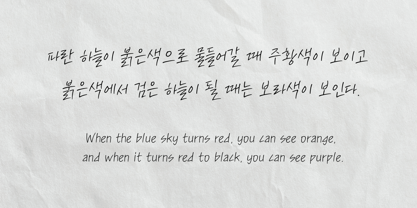 파란 하늘이 붉은색으로 물들어갈 때 주황색이 보이고
붉은색에서 검은 하늘이 될 때는 보라색이 보인다.
When the blue sky turns red, you can see orange,
and when it turns red to black, you can see purple.